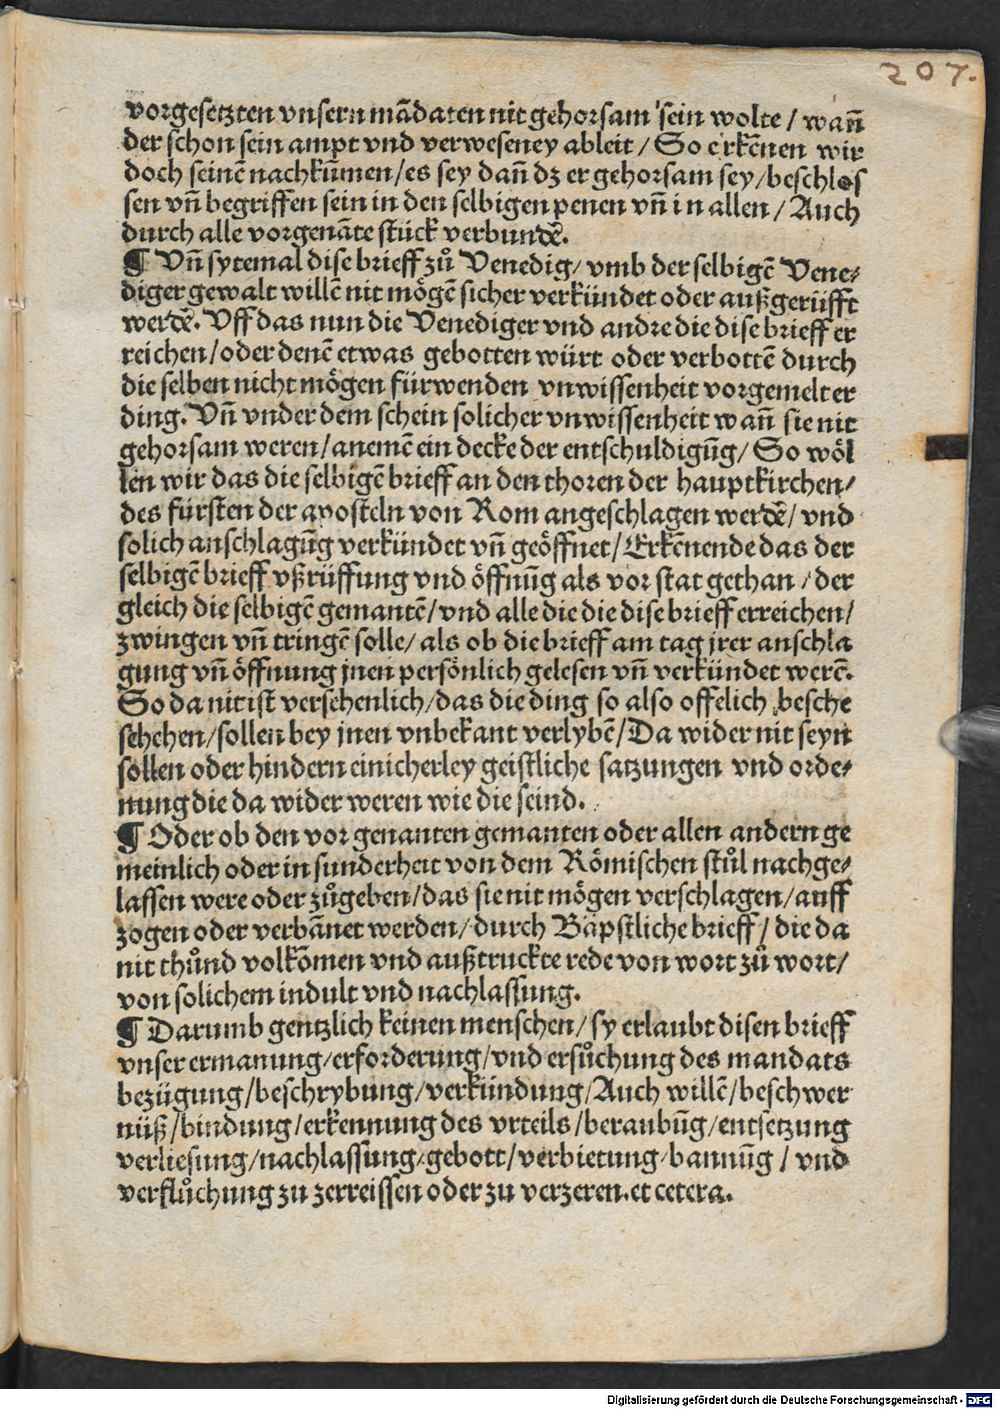 207.
vorgesetzten vnsern mādaten nit gehorsam sein wolte / wañ
der schon sein ampt vnd verweseney ableit / So erkēnen wir
doch seinē nachkūmen / es sey dañ dz er gehorsam sey / beschlos
sen vñ begriffen sein in den selbigen penen vñ in allen / Auch
durch alle vorgenāte stück verbundē.
¶ Vñ sytemal dise brieff zů Venedig / vmb der selbigē Vene⸗
diger gewalt willē nit mögē sicher verkündet oder außgerüfft
werdē. Vff das nun die Venediger vnd andre die dise brieff er
reichen / oder denē etwas gebotten würt oder verbottē durch
die selben nicht mögen fürwenden vnwissenheit vorgemelter
ding. Vñ vnder dem schein solicher vnwissenheit wañ sie nit
gehorsam weren / anemē ein decke der entschuldigūg / So wöl
len wir das die selbigē brieff an den thoren der hauptkirchen /
des fürsten der aposteln von Rom angeschlagen werdē / vnd
solich anschlagūg verkündet vñ geöffnet / Erkēnende das der
selbigē brieff vßrüffung vnd öffnūg als vor stat gethan / der
gleich die selbigē gemantē / vnd alle die die dise brieff erreichen /
zwingen vñ tringē solle / als ob die brieff am tag jrer anschla
gung vñ öffnung jnen persönlich gelesen vñ verkündet werē.
So da nit ist versehenlich / das die ding so also offelich besche
sehehen / sollen bey jnen vnbekant verlybē / Da wider nit seyn
sollen oder hindern einicherley geistliche satzungen vnd orde⸗
nung die da wider weren wie die seind.
¶ Oder ob den vor genanten gemanten oder allen andern ge
meinlich oder in sunderheit von dem Römischen stůl nachge⸗
lassen were oder zůgeben / das sie nit mögen verschlagen / auff
zogen oder verbānet werden / durch Bäpstliche brieff / die da
nit thůnd volkōmen vnd außtruckte rede von wort zů wort /
von solichem indult vnd nachlassung.
¶ Darumb gentzlich keinen menschen / sy erlaubt disen brieff
vnser ermanung / erforderung / vnd ersůchung des mandats
bezügung / beschrybung / verkündung / Auch willē / beschwer
nüß / bindung / erkennung des vrteils / beraubūg / entsetzung
verliesung / nachlassung / gebott / verbietung / bannūg / vnd
verflůchung zu zerreissen oder zu verzeren. et cetera.
Digitalisierung gefördert durch die Deutsche Forschungsgemeinschaft - DFG